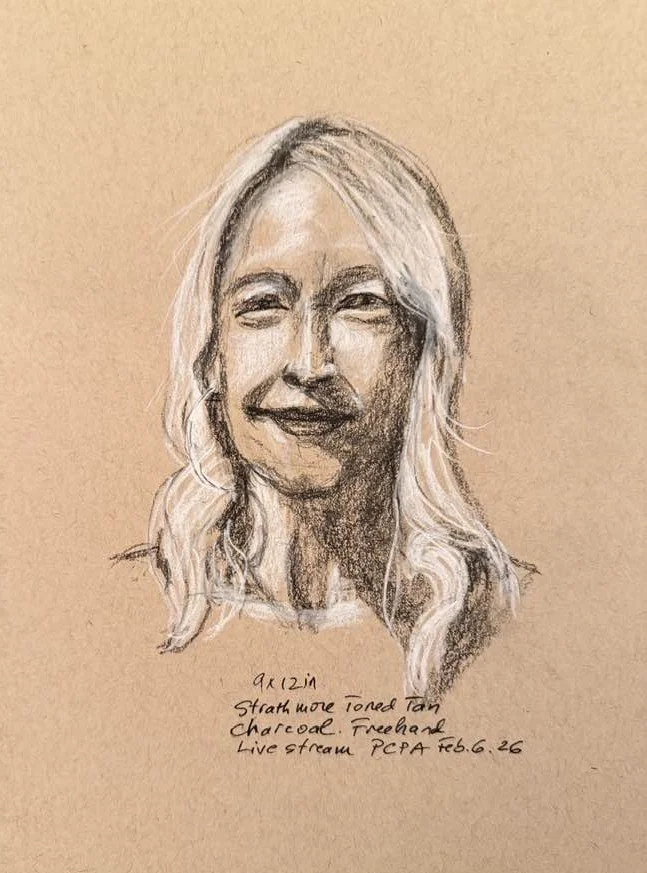 9x12in
Strathmore Toned Tan
Charcoal. Freehand
Live stream PCPA Feb. 6. 26